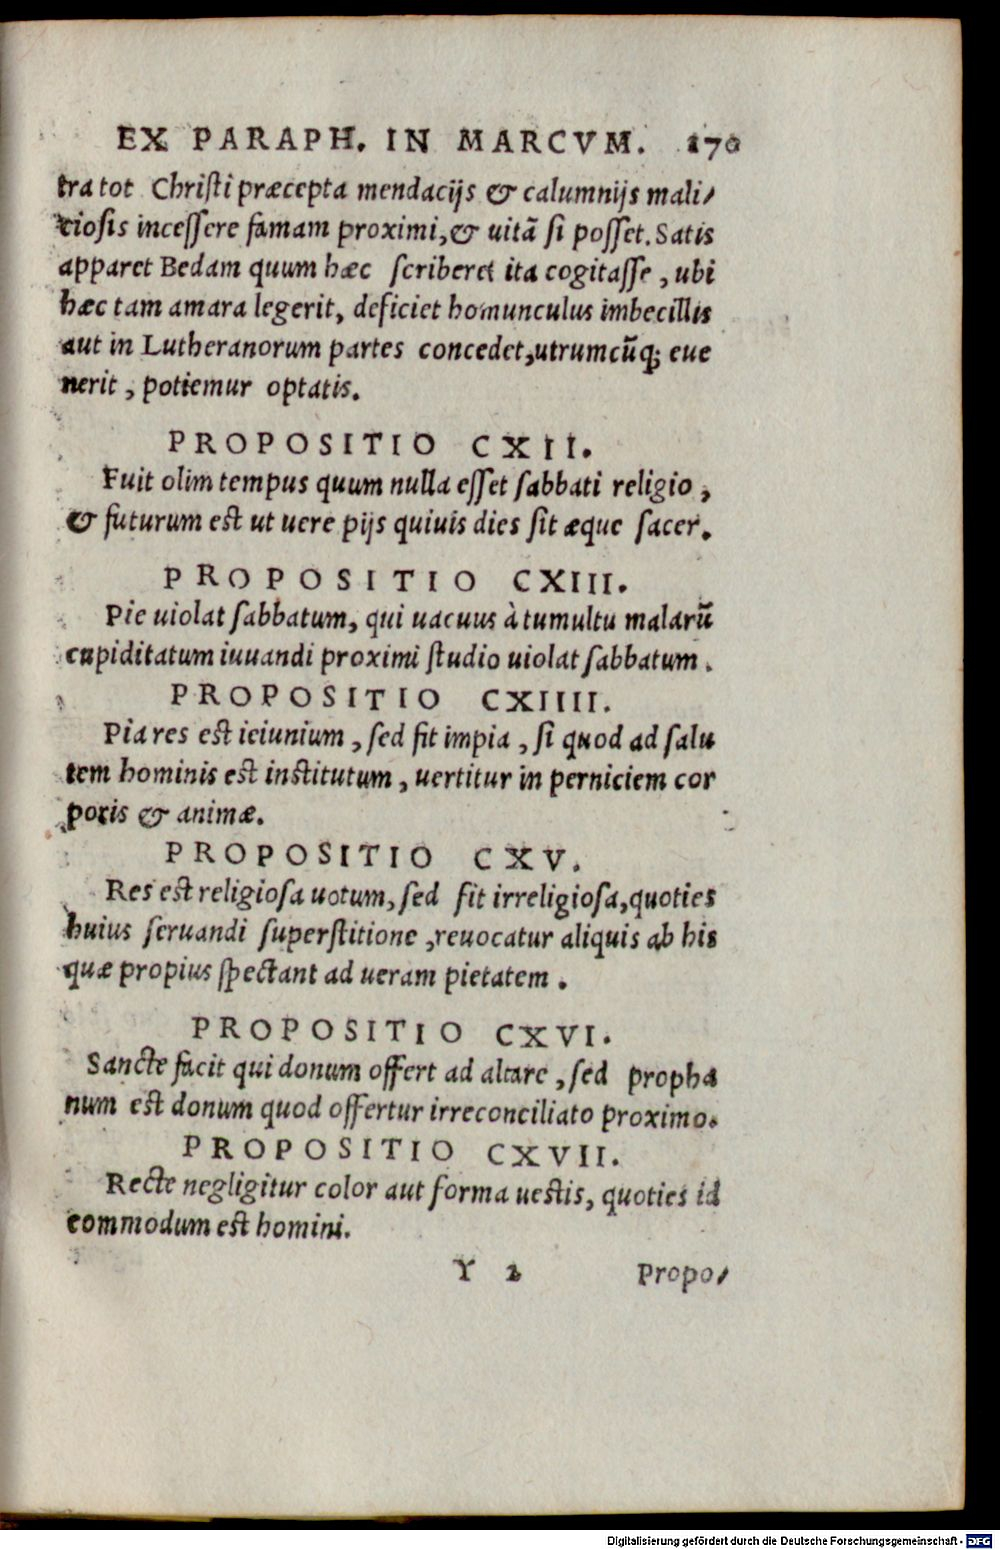 EX PARAPH. IN MARCVM. 170
tra tot Christi præcepta mendacijs & calumnijs mali/
ciosis incessere famam proximi, & uitā si posset. Satis
apparet Bedam quum hæc scriberet ita cogitasse, ubi
hæc tam amara legerit, deficiet homunculus imbecillis
aut in Lutheranorum partes concedet, utrumcūq; eue
nerit, potiemur optatis.
PROPOSITIO CXII.
Fuit olim tempus quum nulla esset sabbati religio,
& futurum est ut uere pijs quiuis dies sit æque sacer.
PROPOSITIO CXIII.
Pie uiolat sabbatum, qui uacuus à tumultu malarū
cupiditatum iuuandi proximi studio uiolat sabbatum.
PROPOSITIO CXIIII.
Pia res est ieiunium, sed fit impia, si quod ad salu
tem hominis est institutum, uertitur in perniciem cor
poris & animæ.
PROPOSITIO CXV.
Res est religiosa uotum, sed fit irreligiosa, quoties
huius seruandi superstitione, reuocatur aliquis ab his
quæ propius spectant ad ueram pietatem.
PROPOSITIO CXVI.
Sancte facit qui donum offert ad altare, sed propha
num est donum quod offertur irreconciliato proximo.
PROPOSITIO CXVII.
Recte negligitur color aut forma uestis, quoties id
commodum est homini.
Y 2 Propo/
Digitalisierung gefördert durch die Deutsche Forschungsgemeinschaft - DFG